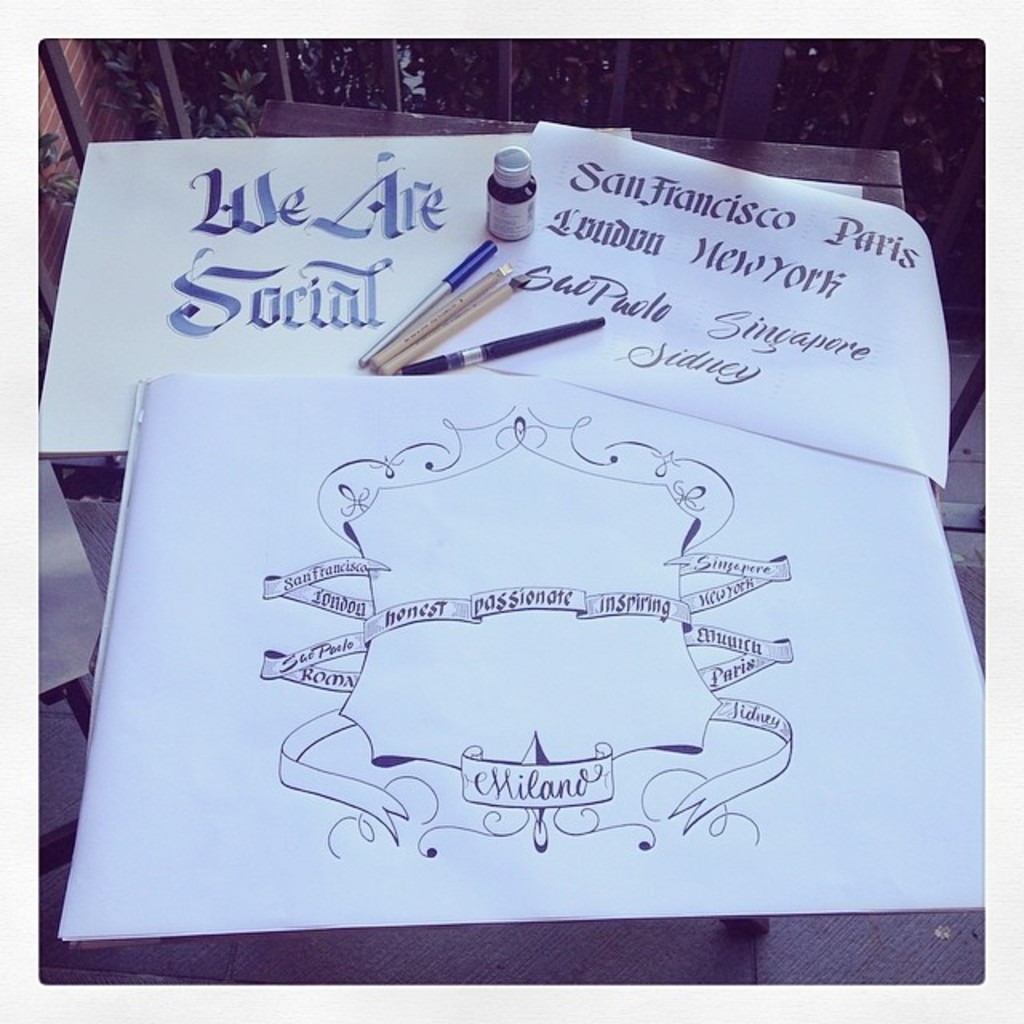 We Are
Social
San Francisco Paris
London New York
Sao Paolo Singapore
Sidney
San Francisco
London
Sao Paolo
ROMA
honest passionate inspiring
Singapore
New York
Munich
Paris
Sidney
Milano